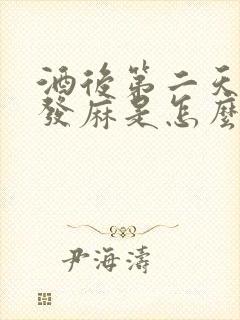 酒後第二天
發麻是怎麼
尹海濤